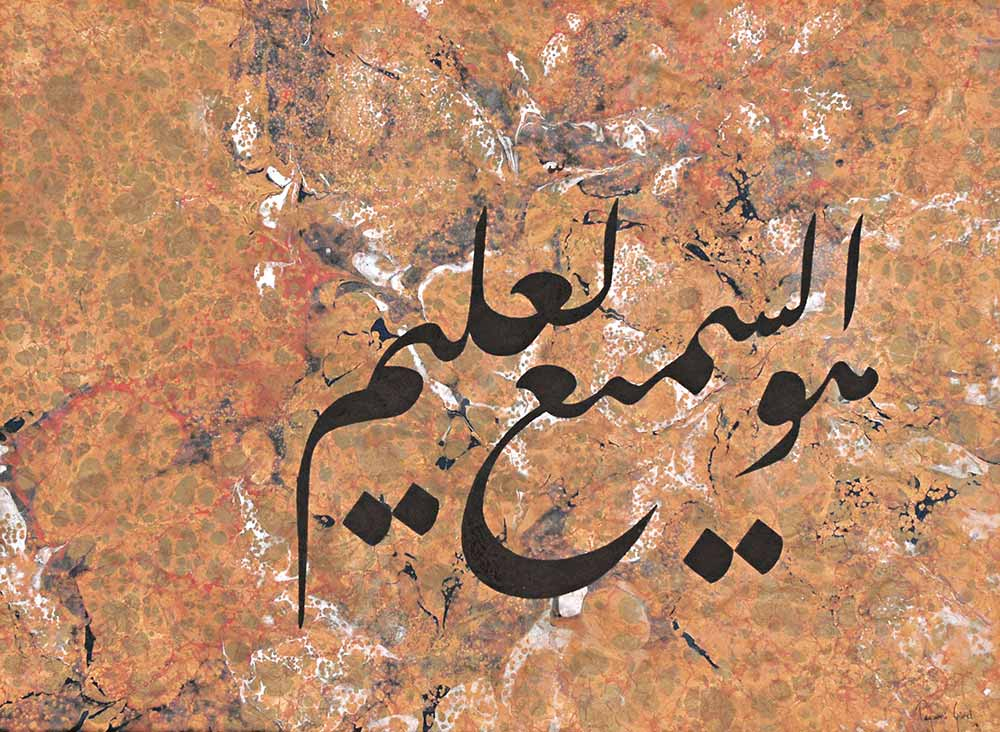 هو السميع لعليم